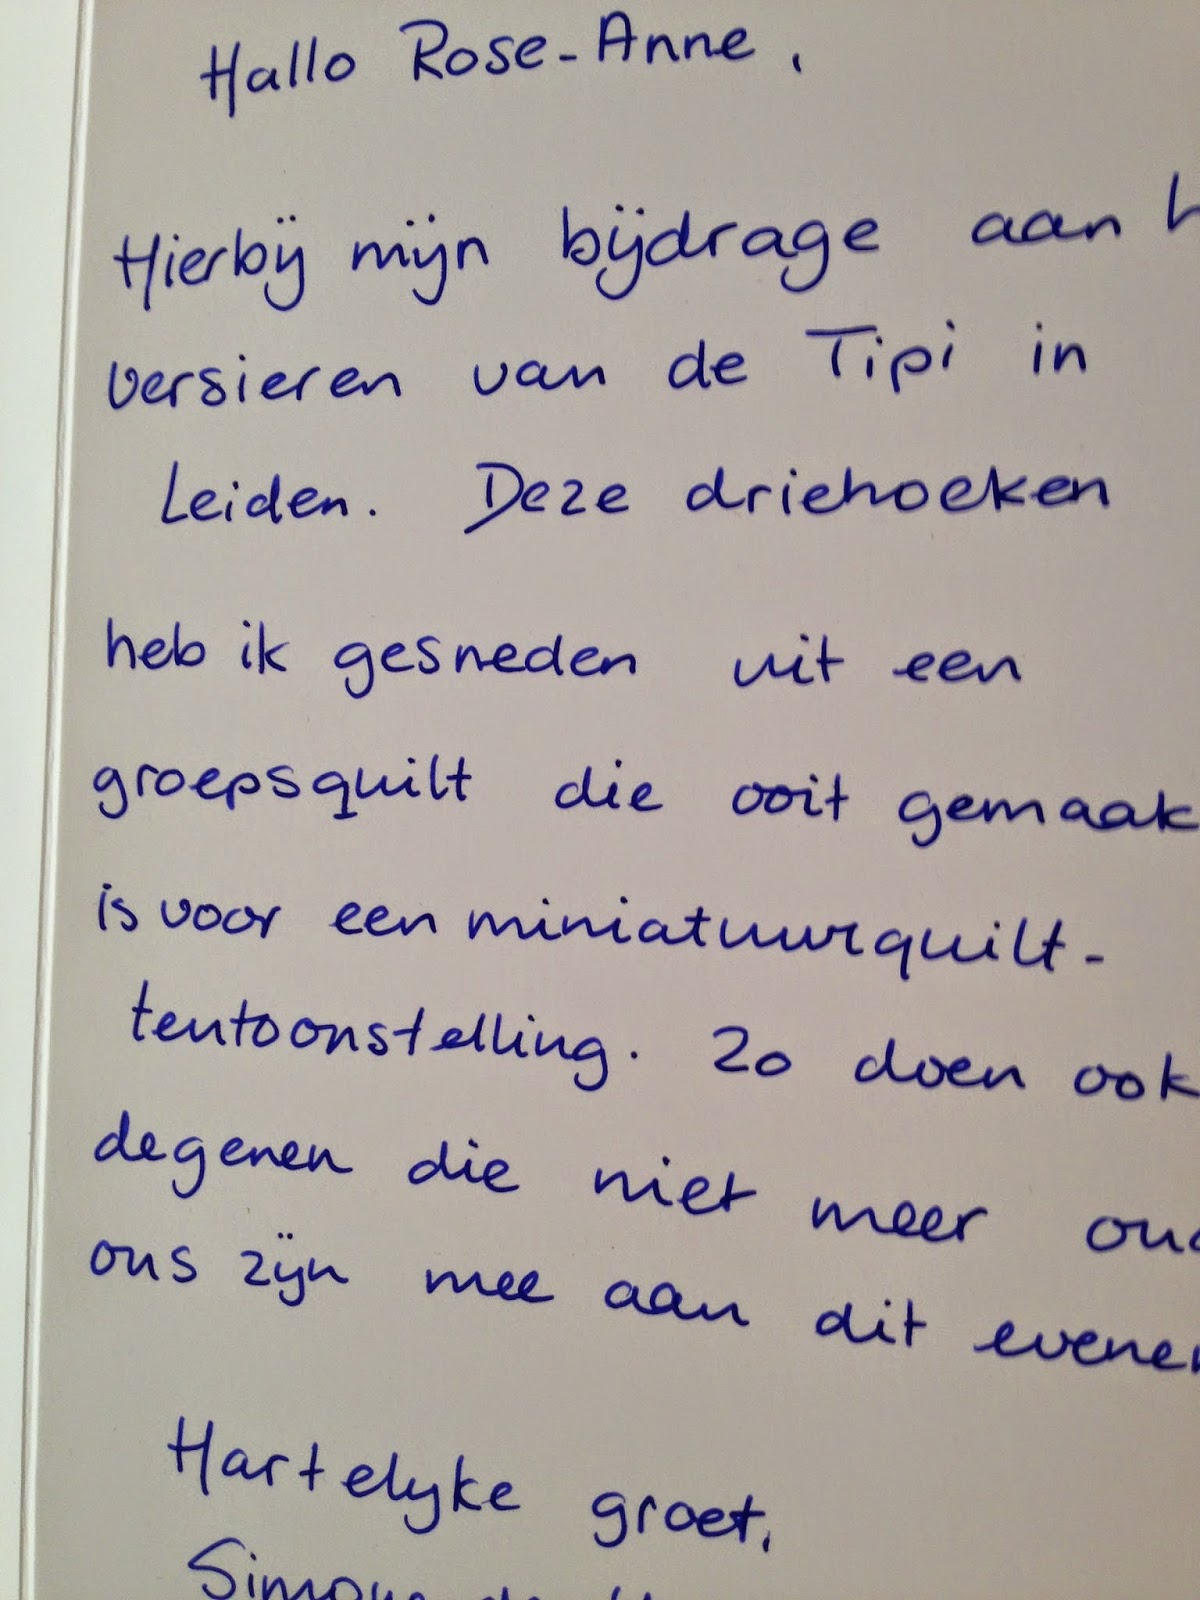 Hallo Rose-Anne,
Hierbij mijn bijdrage aan h
versieren van de Tipi in
Leiden. Deze driehoeken
heb ik gesneden uit een
groepsquilt die ooit gemaak
is voor een miniatuurquilt-
tentoonstelling. Zo doen ook
degenen die niet meer ond
ons zijn mee aan dit evenem
Hartelijke groet,
Simone de